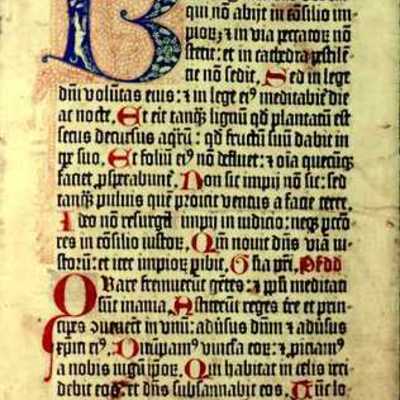 B
qui nõ abijt in cõsilio im-
pioꝝ ⁊ in via peccatoꝝ nõ
stetit: et in cathedra pestilẽ-
tie nõ sedit, Sed in lege
dñi volũtas eius: ⁊ in lege eiꝰ meditabit̃ die
ac nocte. Et erit tanꝙ̃ lignũ qd̃ plantatum est
secus decursus aqꝝ: qd̃ fructũ suũ dabit in
tp̃e suo. Et foliũ eiꝰ nõ defluet: ⁊ oĩa quecũqꝫ
faciet ꝓsperabunt̃. Non sic impij nõ sic: sed
tanꝙ̃ puluis quẽ proicit ventus a facie terre.
Ideo nõ resurgũt impij in iudicio: neqꝫ pctõ-
res in cõsilio iustoꝝ. Qm̃ nouit dñs viã iu-
storũ: et iter impioꝝ ꝑibit. Glia pr̃i.
Quare fremuerũt gẽtes: ⁊ ppl̃i meditati
sũt inania. Astiterũt reges tre et prin-
cipes ꝯuenẽt in vnũ: aduſus dñm ⁊ aduſus
xp̃m eiꝰ. Dirũpamꝰ vincla eoꝝ: ⁊ ꝓiciamꝰ
a nobis iugũ ip̃oꝝ. Qui habitat in celis irri-
debit eos: et dñs subsannabit eos. Tũc lo-